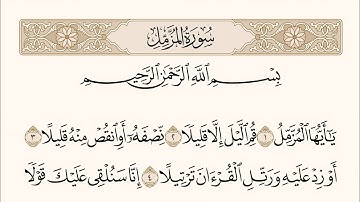 سُورَةُ المُزَّمِّلِ
بِسْمِ ٱللَّهِ ٱلرَّحْمَٰنِ ٱلرَّحِيمِ
يَٰٓأَيُّهَا ٱلْمُزَّمِّلُ ١ قُمِ ٱلَّيْلَ إِلَّا قَلِيلًا ٢ نِّصْفَهُۥٓ أَوِ ٱنقُصْ مِنْهُ قَلِيلًا ٣
أَوْ زِدْ عَلَيْهِ وَرَتِّلِ ٱلْقُرْءَانَ تَرْتِيلًا ٤ إِنَّا سَنُلْقِى عَلَيْكَ قَوْلًا